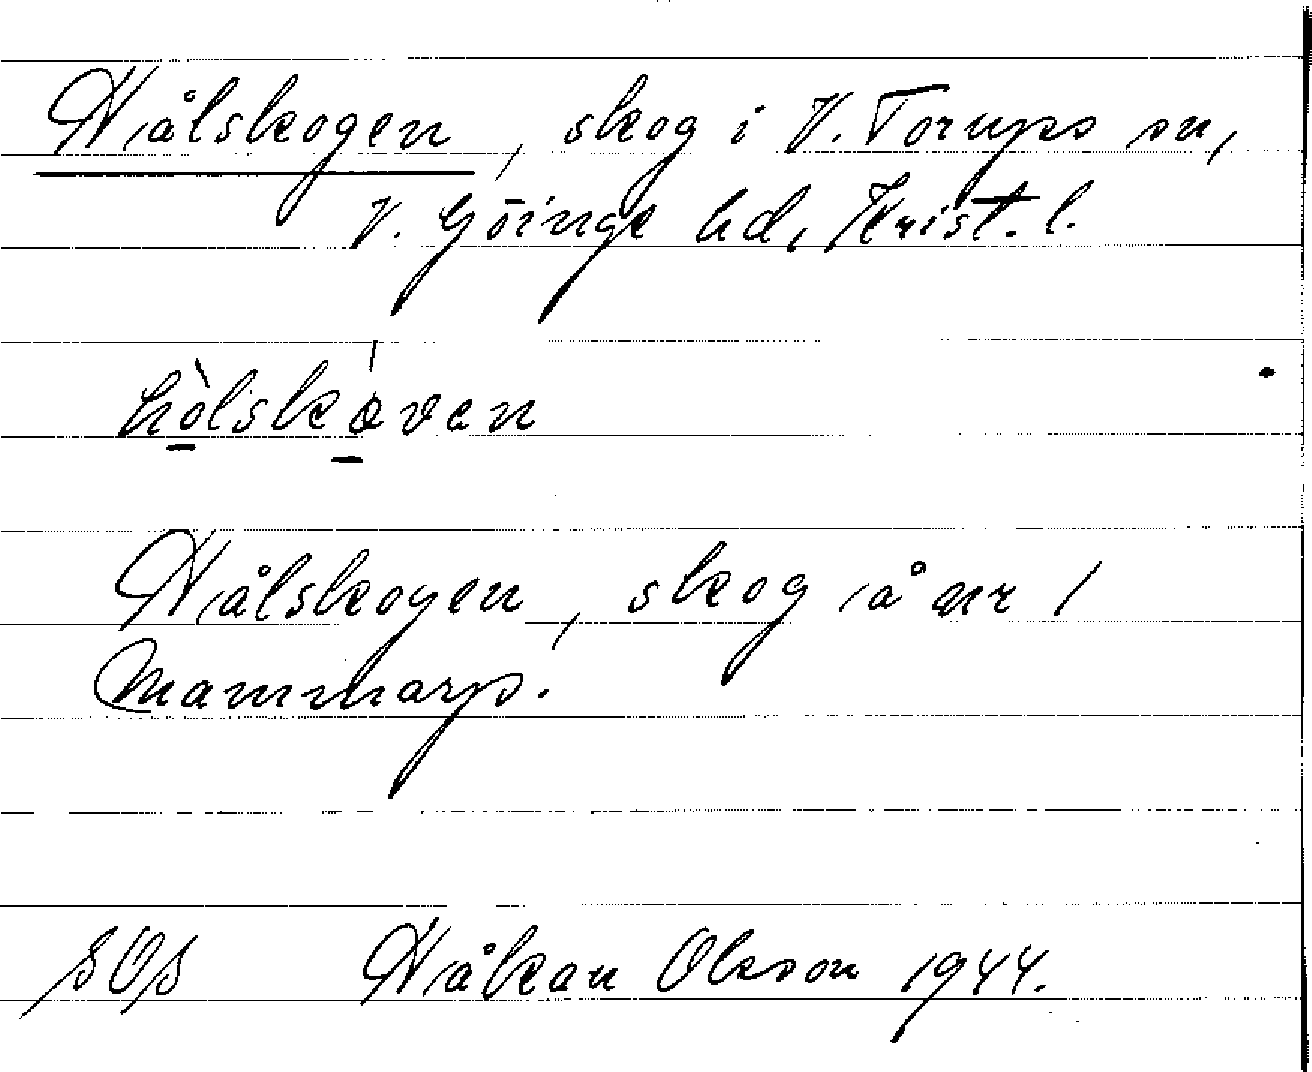 Hålskogen, skog i V. Torups sn,
V. Göinge hd, Krist. l.
hòlskóven
Hålskogen, skog å nr 1
Mammarp.
SOS Håkan Olsson 1944.